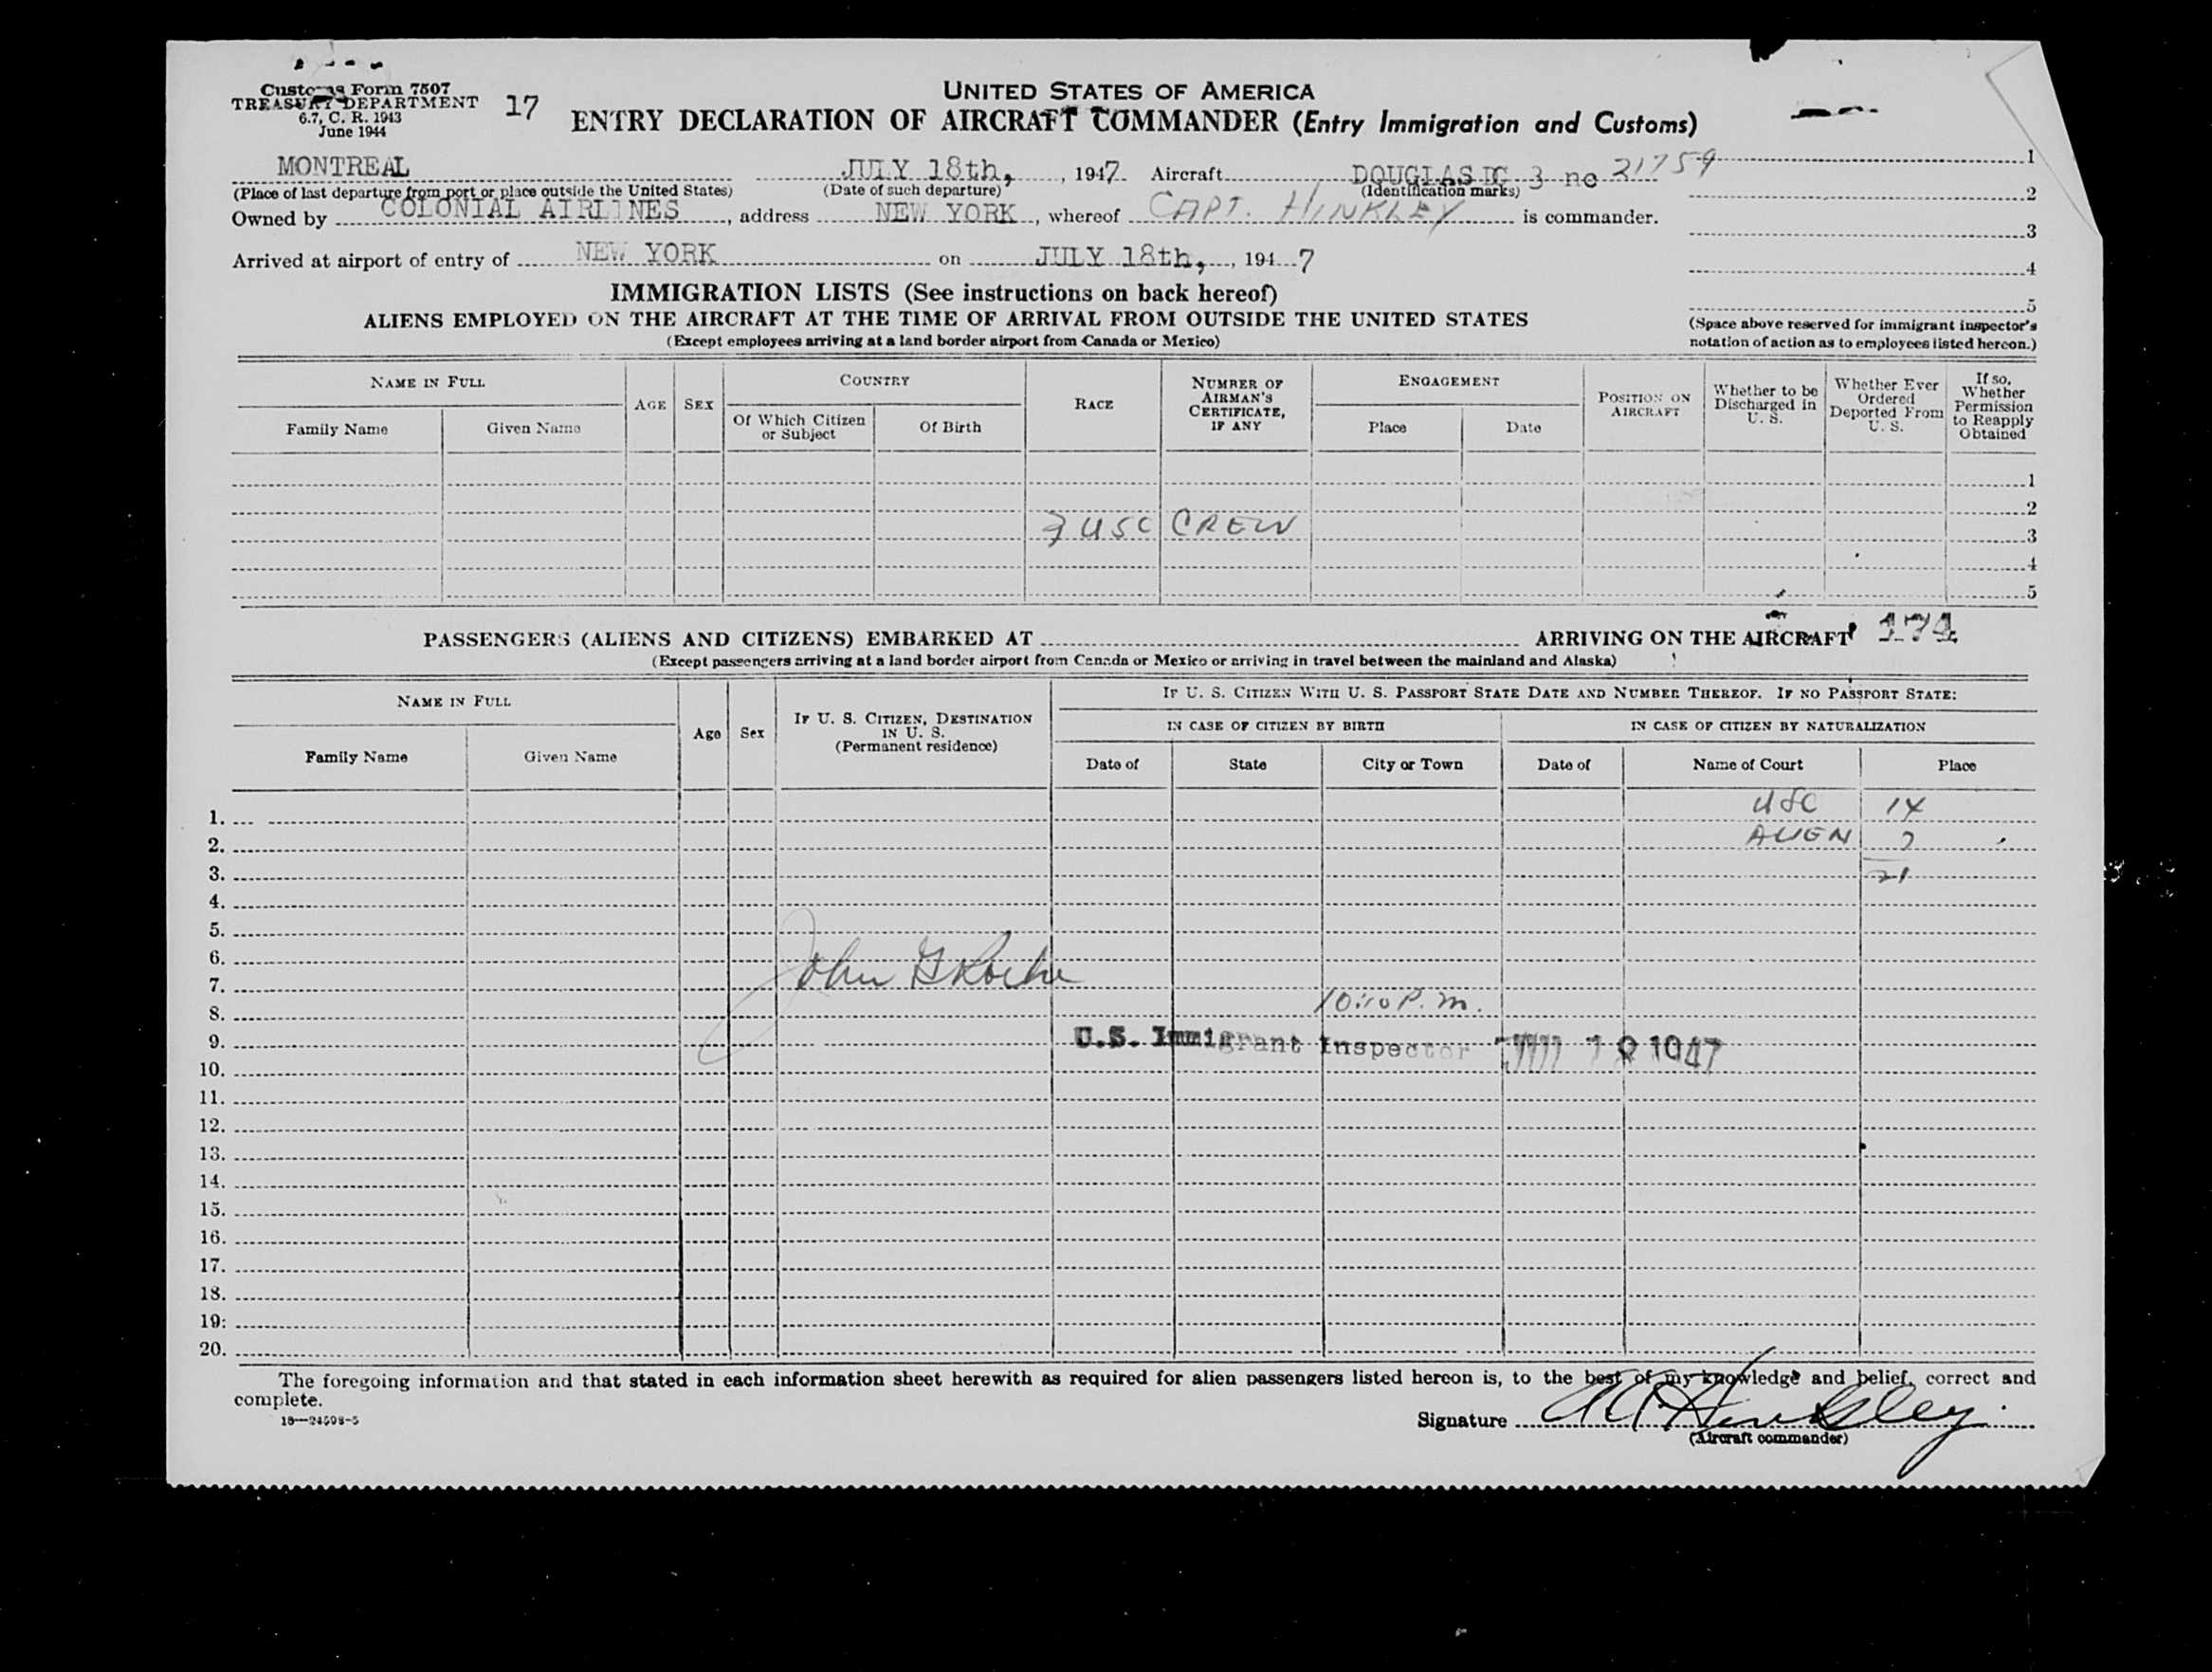 Customs Form 7507
TREASURY DEPARTMENT
6.7, C. R. 1943
June 1944
17
UNITED STATES OF AMERICA
ENTRY DECLARATION OF AIRCRAFT COMMANDER (Entry Immigration and Customs)
MONTREAL JULY 18th, , 1947 Aircraft DOUGLAS DC 3 no 21759 1
(Place of last departure from port or place outside the United States) (Date of such departure) (Identification marks) 2
Owned by COLONIAL AIRLINES , address NEW YORK , whereof CAPT. HINKLEY is commander.
3
Arrived at airport of entry of NEW YORK on JULY 18th, , 1947
4
IMMIGRATION LISTS (See instructions on back hereof)
5
ALIENS EMPLOYED ON THE AIRCRAFT AT THE TIME OF ARRIVAL FROM OUTSIDE THE UNITED STATES
(Except employees arriving at a land border airport from Canada or Mexico)
(Space above reserved for immigrant inspector's
notation of action as to employees listed hereon.)
NAME IN FULL
Family Name Given Name
AGE
SEX
COUNTRY
Of Which Citizen
or Subject
Of Birth
RACE
NUMBER OF
AIRMAN'S
CERTIFICATE,
IF ANY
ENGAGEMENT
Place Date
POSITION ON
AIRCRAFT
Whether to be
Discharged in
U. S.
Whether Ever
Ordered
Deported From
U. S.
If so,
Whether
Permission
to Reapply
Obtained
1
2
USC CREW
3
4
5
PASSENGERS (ALIENS AND CITIZENS) EMBARKED AT ARRIVING ON THE AIRCRAFT 174
(Except passengers arriving at a land border airport from Canada or Mexico or arriving in travel between the mainland and Alaska)
NAME IN FULL
Family Name Given Name
Age
Sex
IF U. S. CITIZEN, DESTINATION
IN U. S.
(Permanent residence)
IF U. S. CITIZEN WITH U. S. PASSPORT STATE DATE AND NUMBER THEREOF. IF NO PASSPORT STATE:
IN CASE OF CITIZEN BY BIRTH IN CASE OF CITIZEN BY NATURALIZATION
Date of State City or Town Date of Name of Court Place
1. USC 14
2. ALIEN 7
3. 21
4.
5.
6.
John G Roche
7.
10:10 P.m.
8.
9. U.S. Immigrant Inspector JUL 18 1947
10.
11.
12.
13.
14.
15.
16.
17.
18.
19:
20.
The foregoing information and that stated in each information sheet herewith as required for alien passengers listed hereon is, to the best of my knowledge and belief, correct and
complete.
16—24598-5
Signature Hinkley
(Aircraft commander)